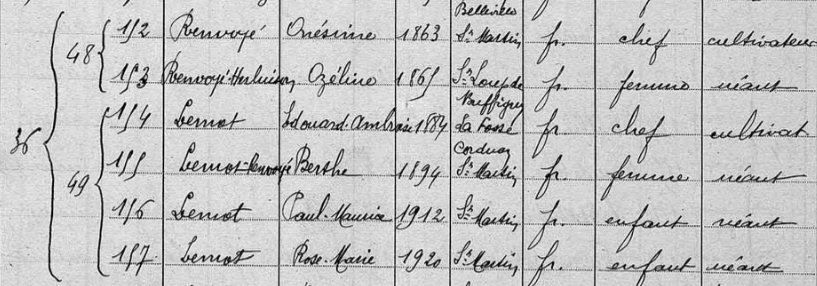 Belleville
48 152 Renvoyé Onésime 1863 St Martin fr. chef cultivateur
153 Renvoyé Herluison Ozéline 1865 St Loup de Buffigny fr. femme néant
36
49 154 Lemot Edouard-Ambroise 1884 La Fosse Corduan fr. chef cultivat
155 Lemot-Renvoyé Berthe 1894 St Martin fr. femme néant
156 Lemot Paul-Maurice 1912 St Martin fr. enfant néant
157 Lemot Rose-Marie 1920 St Martin fr. enfant néant